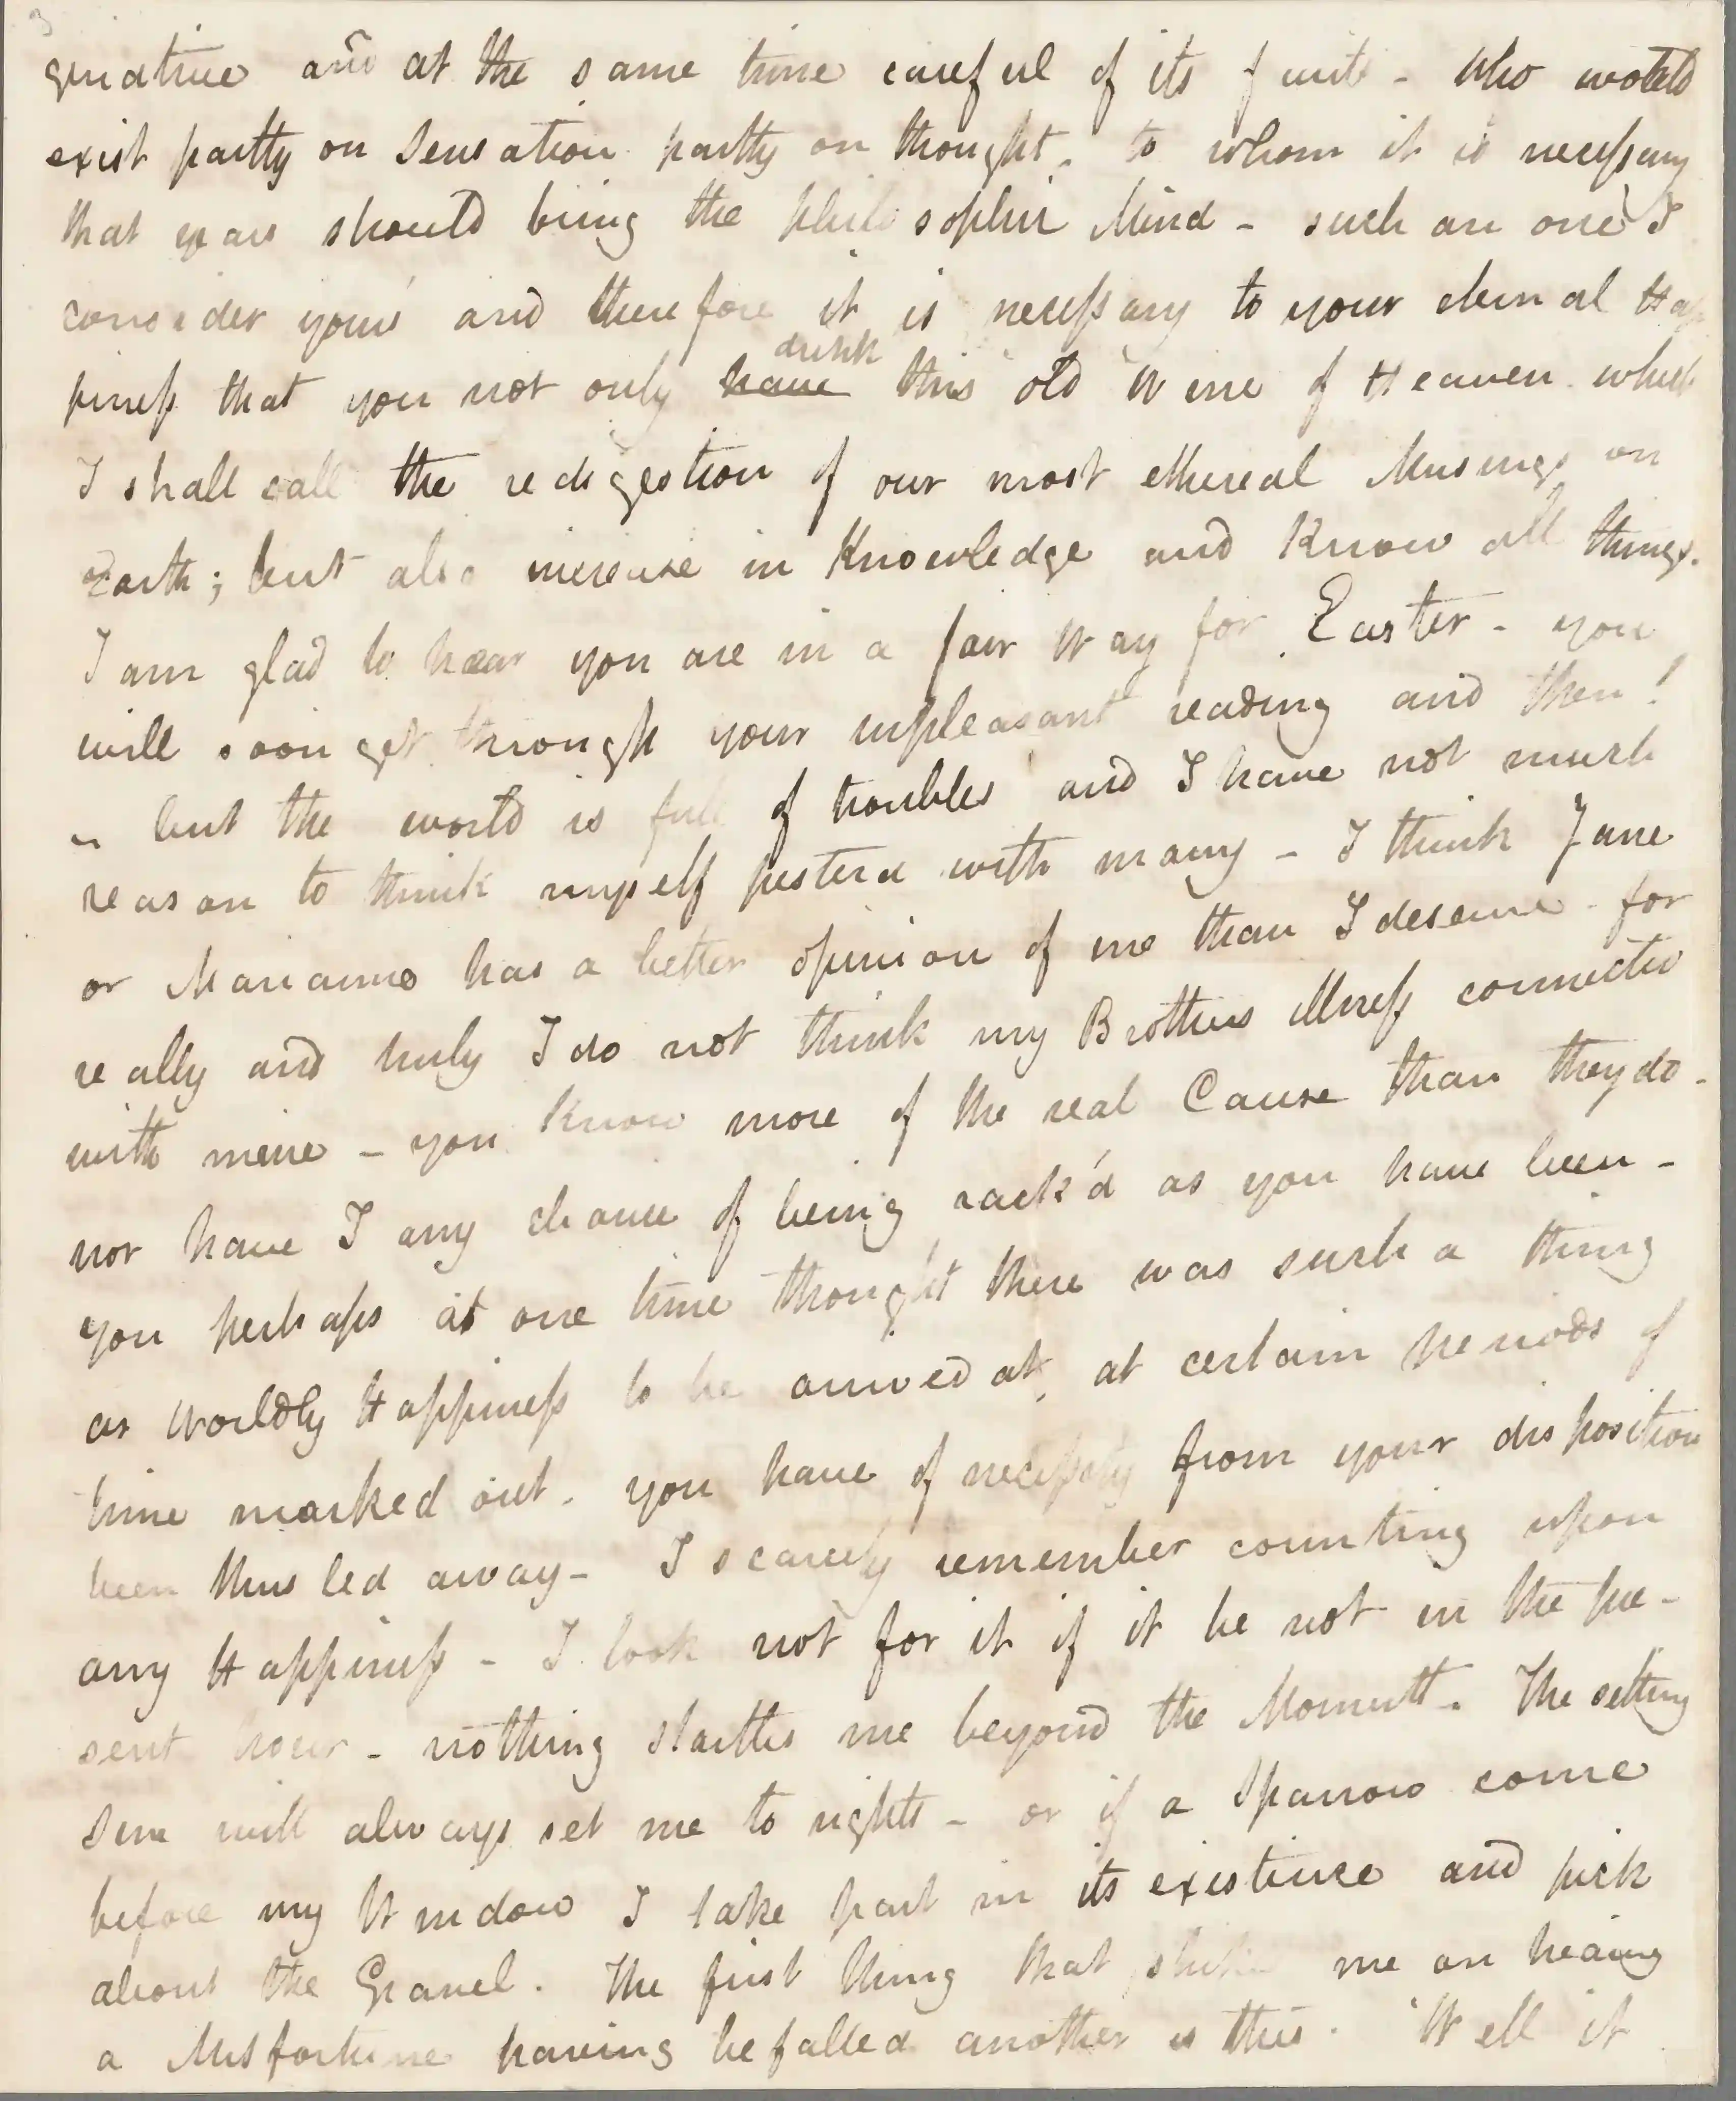 3
ginative and at the same time careful of its fruits - who would
exist partly on sensation partly on thought - to whom it is necessary
that years should bring the philosophic Mind - such an one I
consider your's and therefore it is necessary to your eternal Hap
piness that you not only have drink this old Wine of Heaven which
I shall call the redigestion of our most ethereal Musings on
Earth; but also increase in knowledge and know all things.
I am glad to hear you are in a fair Way for Easter - you
will soon get through your unpleasant reading and then!
- but the world is full of troubles and I have not much
reason to think myself pesterd with many - I think Jane
or Marianne has a better opinion of me than I deserve - for
really and truly I do not think my Brothers illness connected
with mine - you know more of the real Cause than they do -
nor have I any chance of being rack'd as you have been -
you perhaps at one time thought there was such a thing
as Worldly Happiness to be arrived at, at certain periods of
time marked out - you have of necessity from your disposition
been thus led away - I scarcely remember counting upon
any Happiness - I look not for it if it be not in the pre-
sent hour - nothing startles me beyond the Moment. The setting
sun will always set me to rights - or if a Sparrow come
before my Window I take part in its existince and pick
about the Gravel. The first thing that strikes me on heaing
a Misfortune having befalled another is this. 'Well it